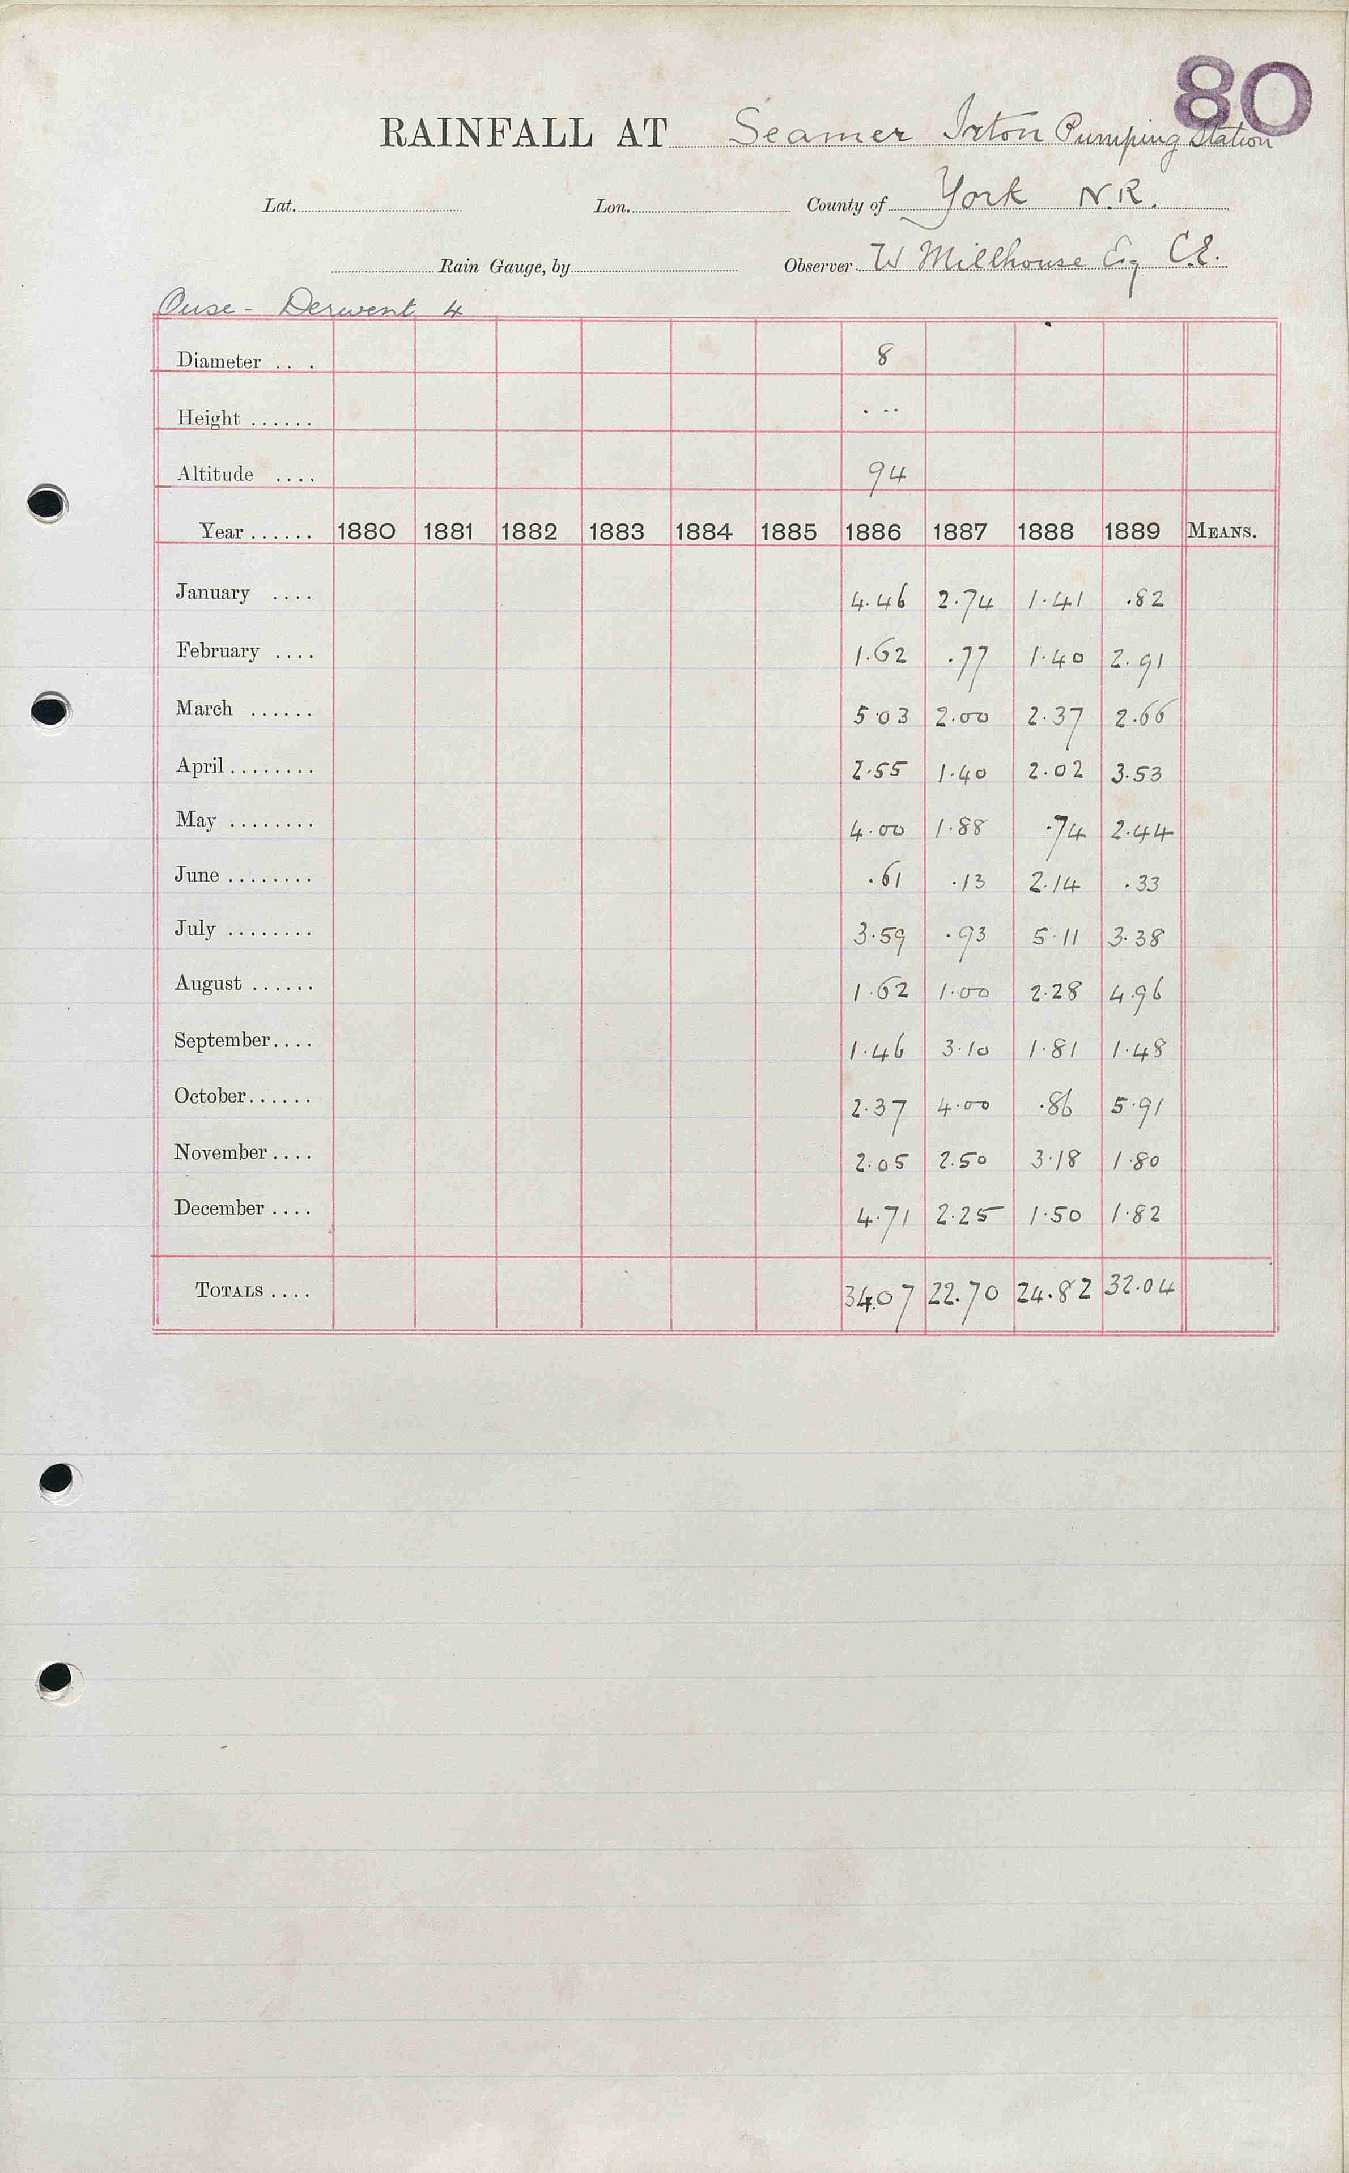 80
RAINFALL AT Seamer Irton Pumping Station
Lat. Lon. County of York N.R.
Rain Gauge, by Observer W Millhouse Esq C.E.
Ouse - Derwent 4
Diameter .... 8
Height ...... ...
Altitude .... 94
Year ...... 1880 1881 1882 1883 1884 1885 1886 1887 1888 1889 MEANS.
January .... 4.46 2.74 1.41 .82
February .... 1.62 .77 1.40 2.91
March ...... 5.03 2.00 2.37 2.66
April ........ 2.55 1.40 2.02 3.53
May ........ 4.00 1.88 .74 2.44
June ........ .61 .13 2.14 .33
July ........ 3.59 .93 5.11 3.38
August ...... 1.62 1.00 2.28 4.96
September.... 1.46 3.10 1.81 1.48
October...... 2.37 4.00 .86 5.91
November .... 2.05 2.50 3.18 1.80
December .... 4.71 2.25 1.50 1.82
TOTALS .... 34.07 22.70 24.82 32.04